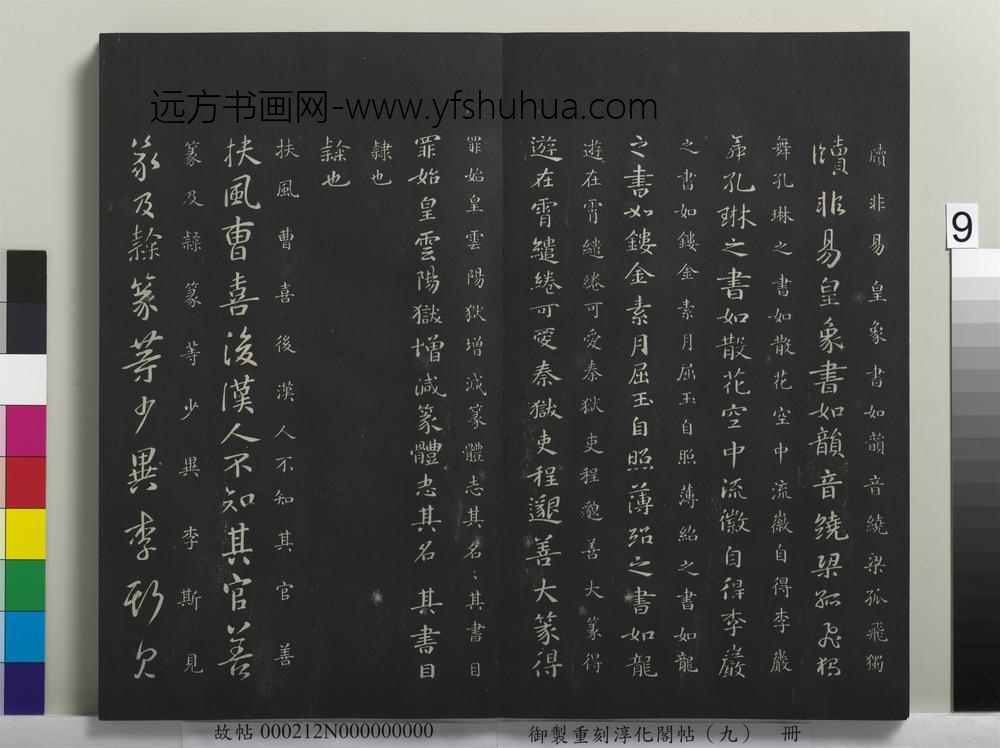 远方书画网-www.yfshuhua.com
9
牘非易皇象書如韻音繞梁孤飛獨
牘非易皇象書如韻音繞梁孤飛獨
舞孔琳之書如散花空中流徽自得李巖
舞孔琳之書如散花空中流徽自得李巖
之書如鏤金素月屈玉自照薄紹之書如龍
之書如鏤金素月屈玉自照薄紹之書如龍
遊在霄繾綣可愛秦獄吏程邈善大篆得
遊在霄繾綣可愛秦獄吏程邈善大篆得
罪始皇雲陽獄增減篆體志其名〻其書目
罪始皇雲陽獄增減篆體志其名 其書目
隸也
隸也
扶風曹喜後漢人不知其官善
扶風曹喜後漢人不知其官善
篆及隸篆等少異李斯見
篆及隸篆等少異李斯見
故帖 000212N000000000
御製重刻淳化閣帖（九） 冊